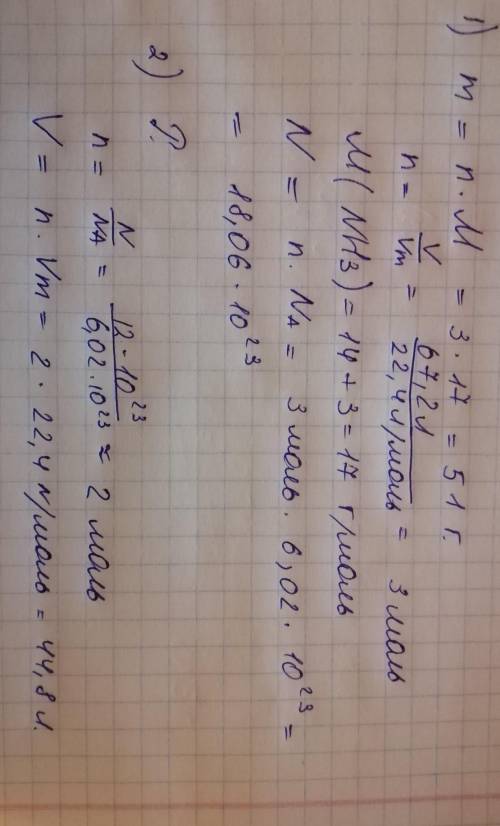 1) m = n · M = 3 · 17 = 51 г.
n = V/Vm = 67,2 л/22,4 л/моль = 3 моль
M(NH3) = 14 + 3 = 17 г/моль
N = n · NA = 3 моль · 6,02 · 10²³ =
= 18,06 · 10²³
2)
n = N/NA = 12 · 10²³/6,02 · 10²³ ≈ 2 моль
V = n · Vm = 2 · 22,4 л/моль = 44,8 л.